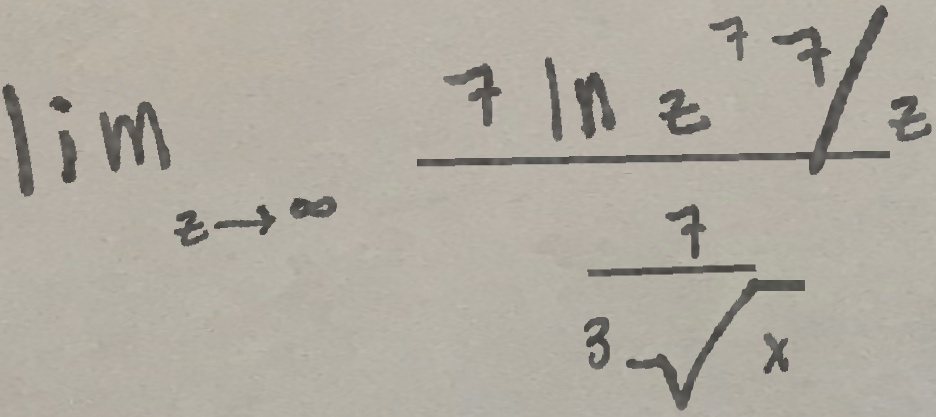 lim z→∞ 7 ln z^7 7/z
7
3√x